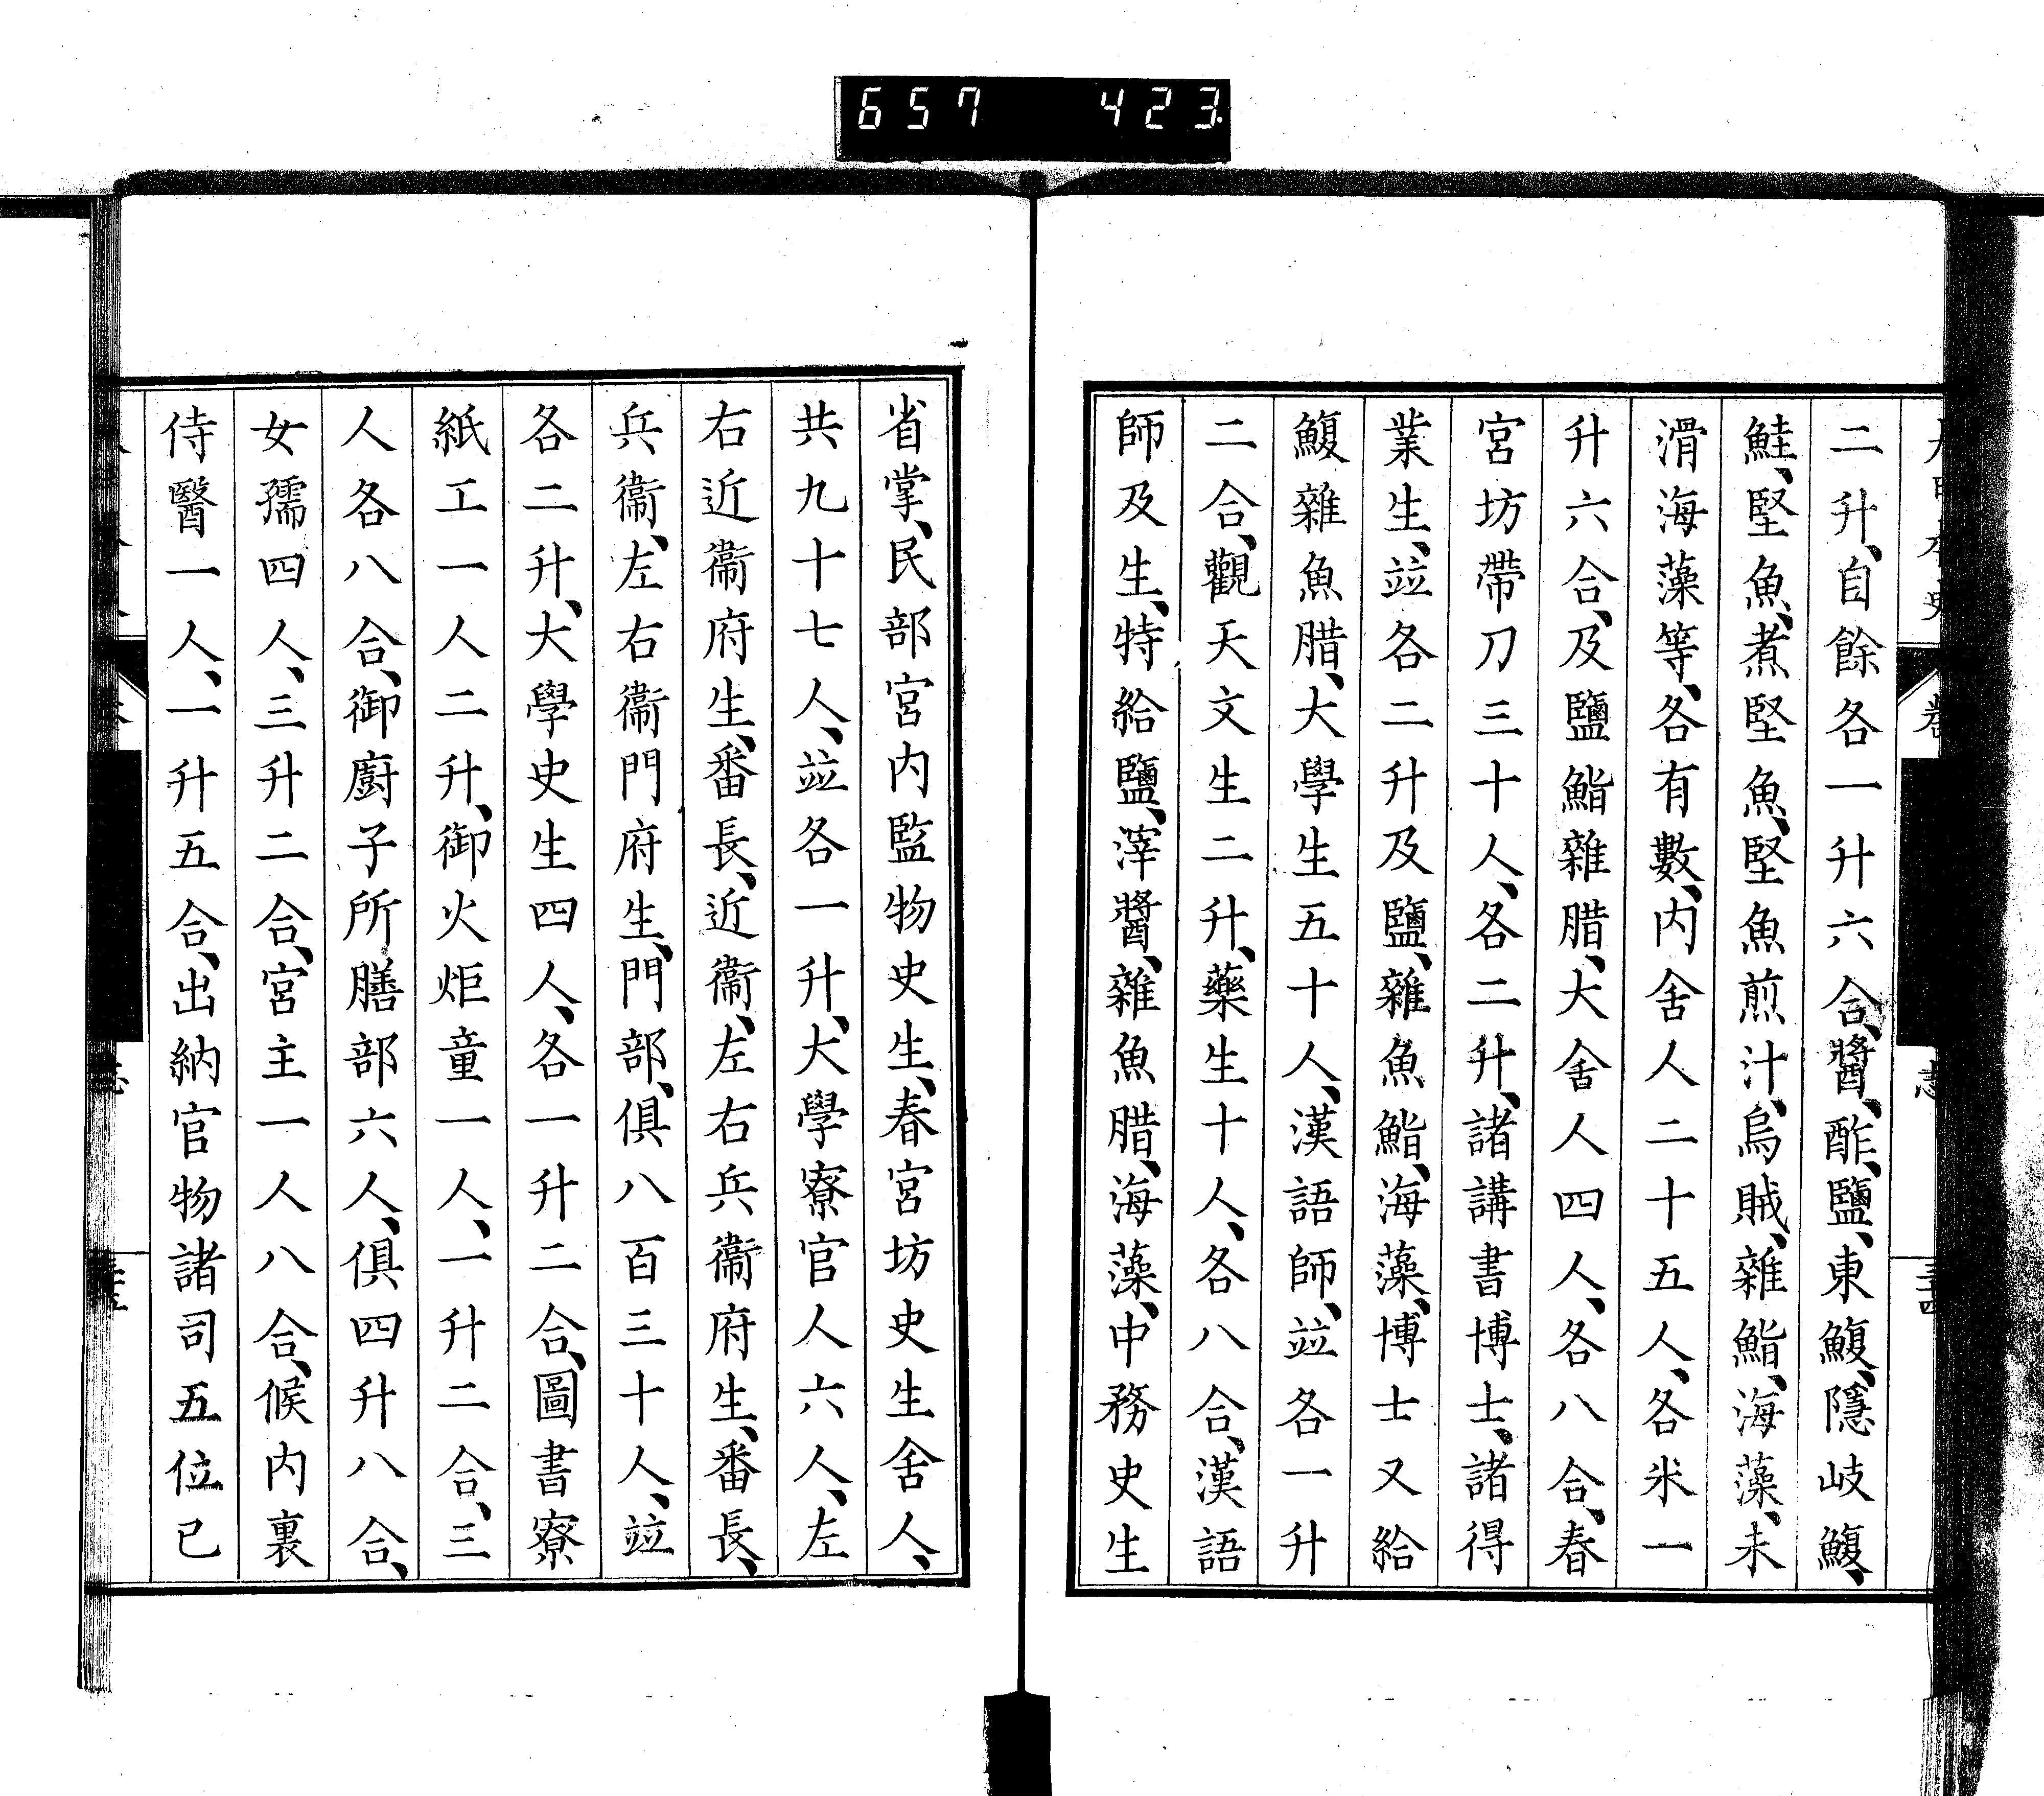 657 423
二升、自餘各一升六合、醬、酢、鹽、東鰒、隱岐鰒、
鮭、堅魚、煮堅魚、堅魚煎汁、烏賊、雜鮨、海藻、未
滑海藻等、各有數、内舍人二十五人、各米一
升六合、及鹽鮨雜腊、大舍人四人、各八合、春
宮坊帶刀三十人、各二升、諸講書博士、諸得
業生、竝各二升及鹽、雜魚鮨、海藻、博士又給
鰒雜魚腊、大學生五十人、漢語師、竝各一升
二合、觀天文生二升、藥生十人、各八合、漢語
師及生、特給鹽、滓醬、雜魚腊、海藻、中務史生
省掌、民部宮内監物史生、春宮坊史生舍人、
共九十七人、竝各一升、大學寮官人六人、左
右近衞府生、番長、近衞、左右兵衞府生、番長、
兵衞、左右衞門府生、門部、俱八百三十人、竝
各二升、大學史生四人、各一升二合、圖書寮
紙工一人二升、御火炬童一人、一升二合、三
人各八合、御廚子所膳部六人、俱四升八合、
女孺四人、三升二合、宮主一人八合、候内裏
侍醫一人、一升五合、出納官物諸司五位已